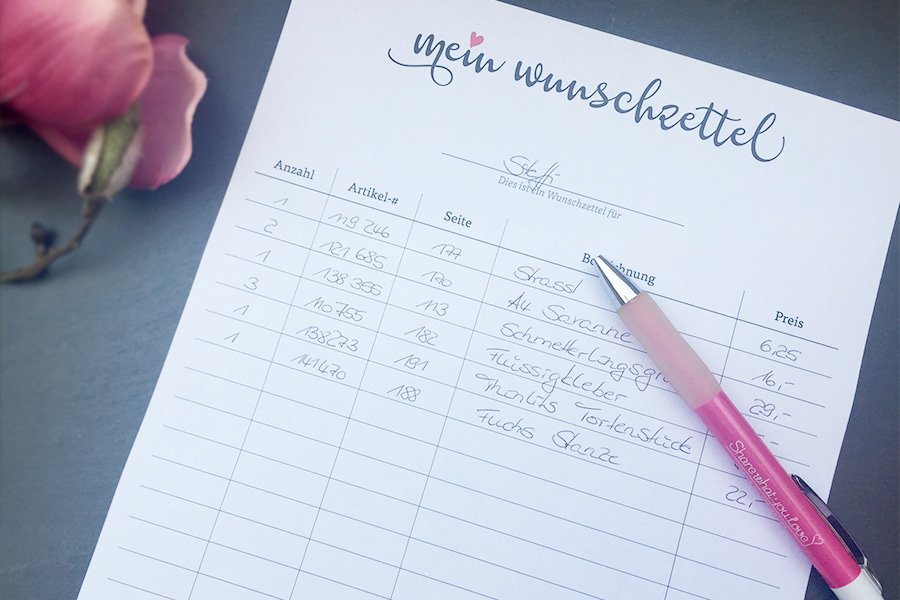 mein wunschzettel
Steffi
Dies ist ein Wunschzettel für
Anzahl Artikel-# Seite Bezeichnung Preis
1 119 246 177 Strassl 6,25
2 121 685 170 A4 Saranne 16,-
1 138 355 113 29,-
3 110 755 182 Flüssigkleber
1 138273 191 Tortenstück
1 141470 188 Fuchs Stanze 22,-
Share what you love